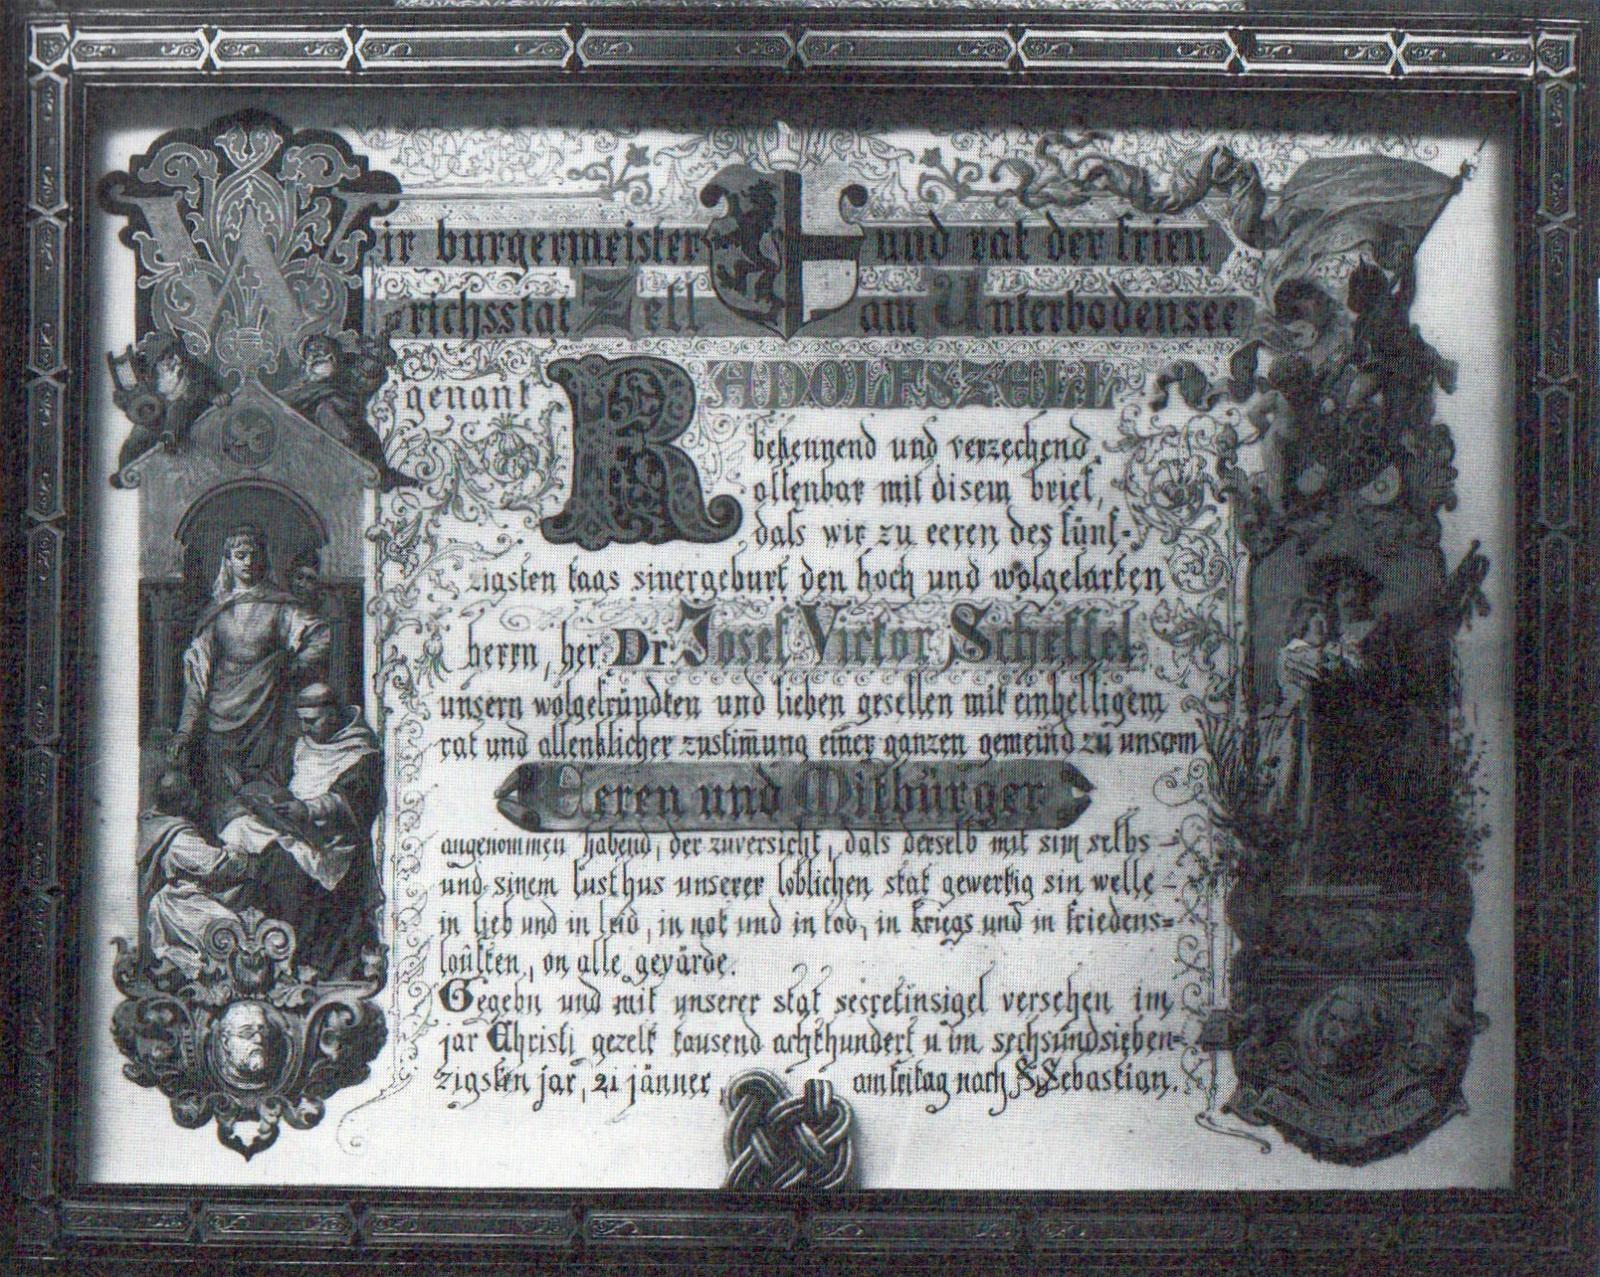 Wir burgermeister und rat der frien
richsstat Zell am Unterbodensee
genant RADOLFSZELL
bekennend und verzechend
offenbar mit disem brief,
dafs wir zu eeren des fünf-
zigsten taas siner geburt den hoch und wolgelarten
herrn, her Dr. Josef Victor Scheffel
unsern wolgefründten und lieben gesellen mit einhelligem
rat und allenklicher zustim̄ung einer ganzen gemeind zu unserm
Eeren und Mitbürger
angenommen habend, der zuversicht, dafs derselb mit sim selbs
und sinem lusthus unserer loblichen stat gewertig sin welle
in lieb und in leid, in not und in tod, in kriegs und in friedens=
loüften, on alle gevärde.
Gegebn und mit unserer stat secretinsigel versehen im
jar Christi gezelt tausend achthundert u im sechsundsieben=
zigsten jar, 21 jänner, am fritag nach S. Sebastian.